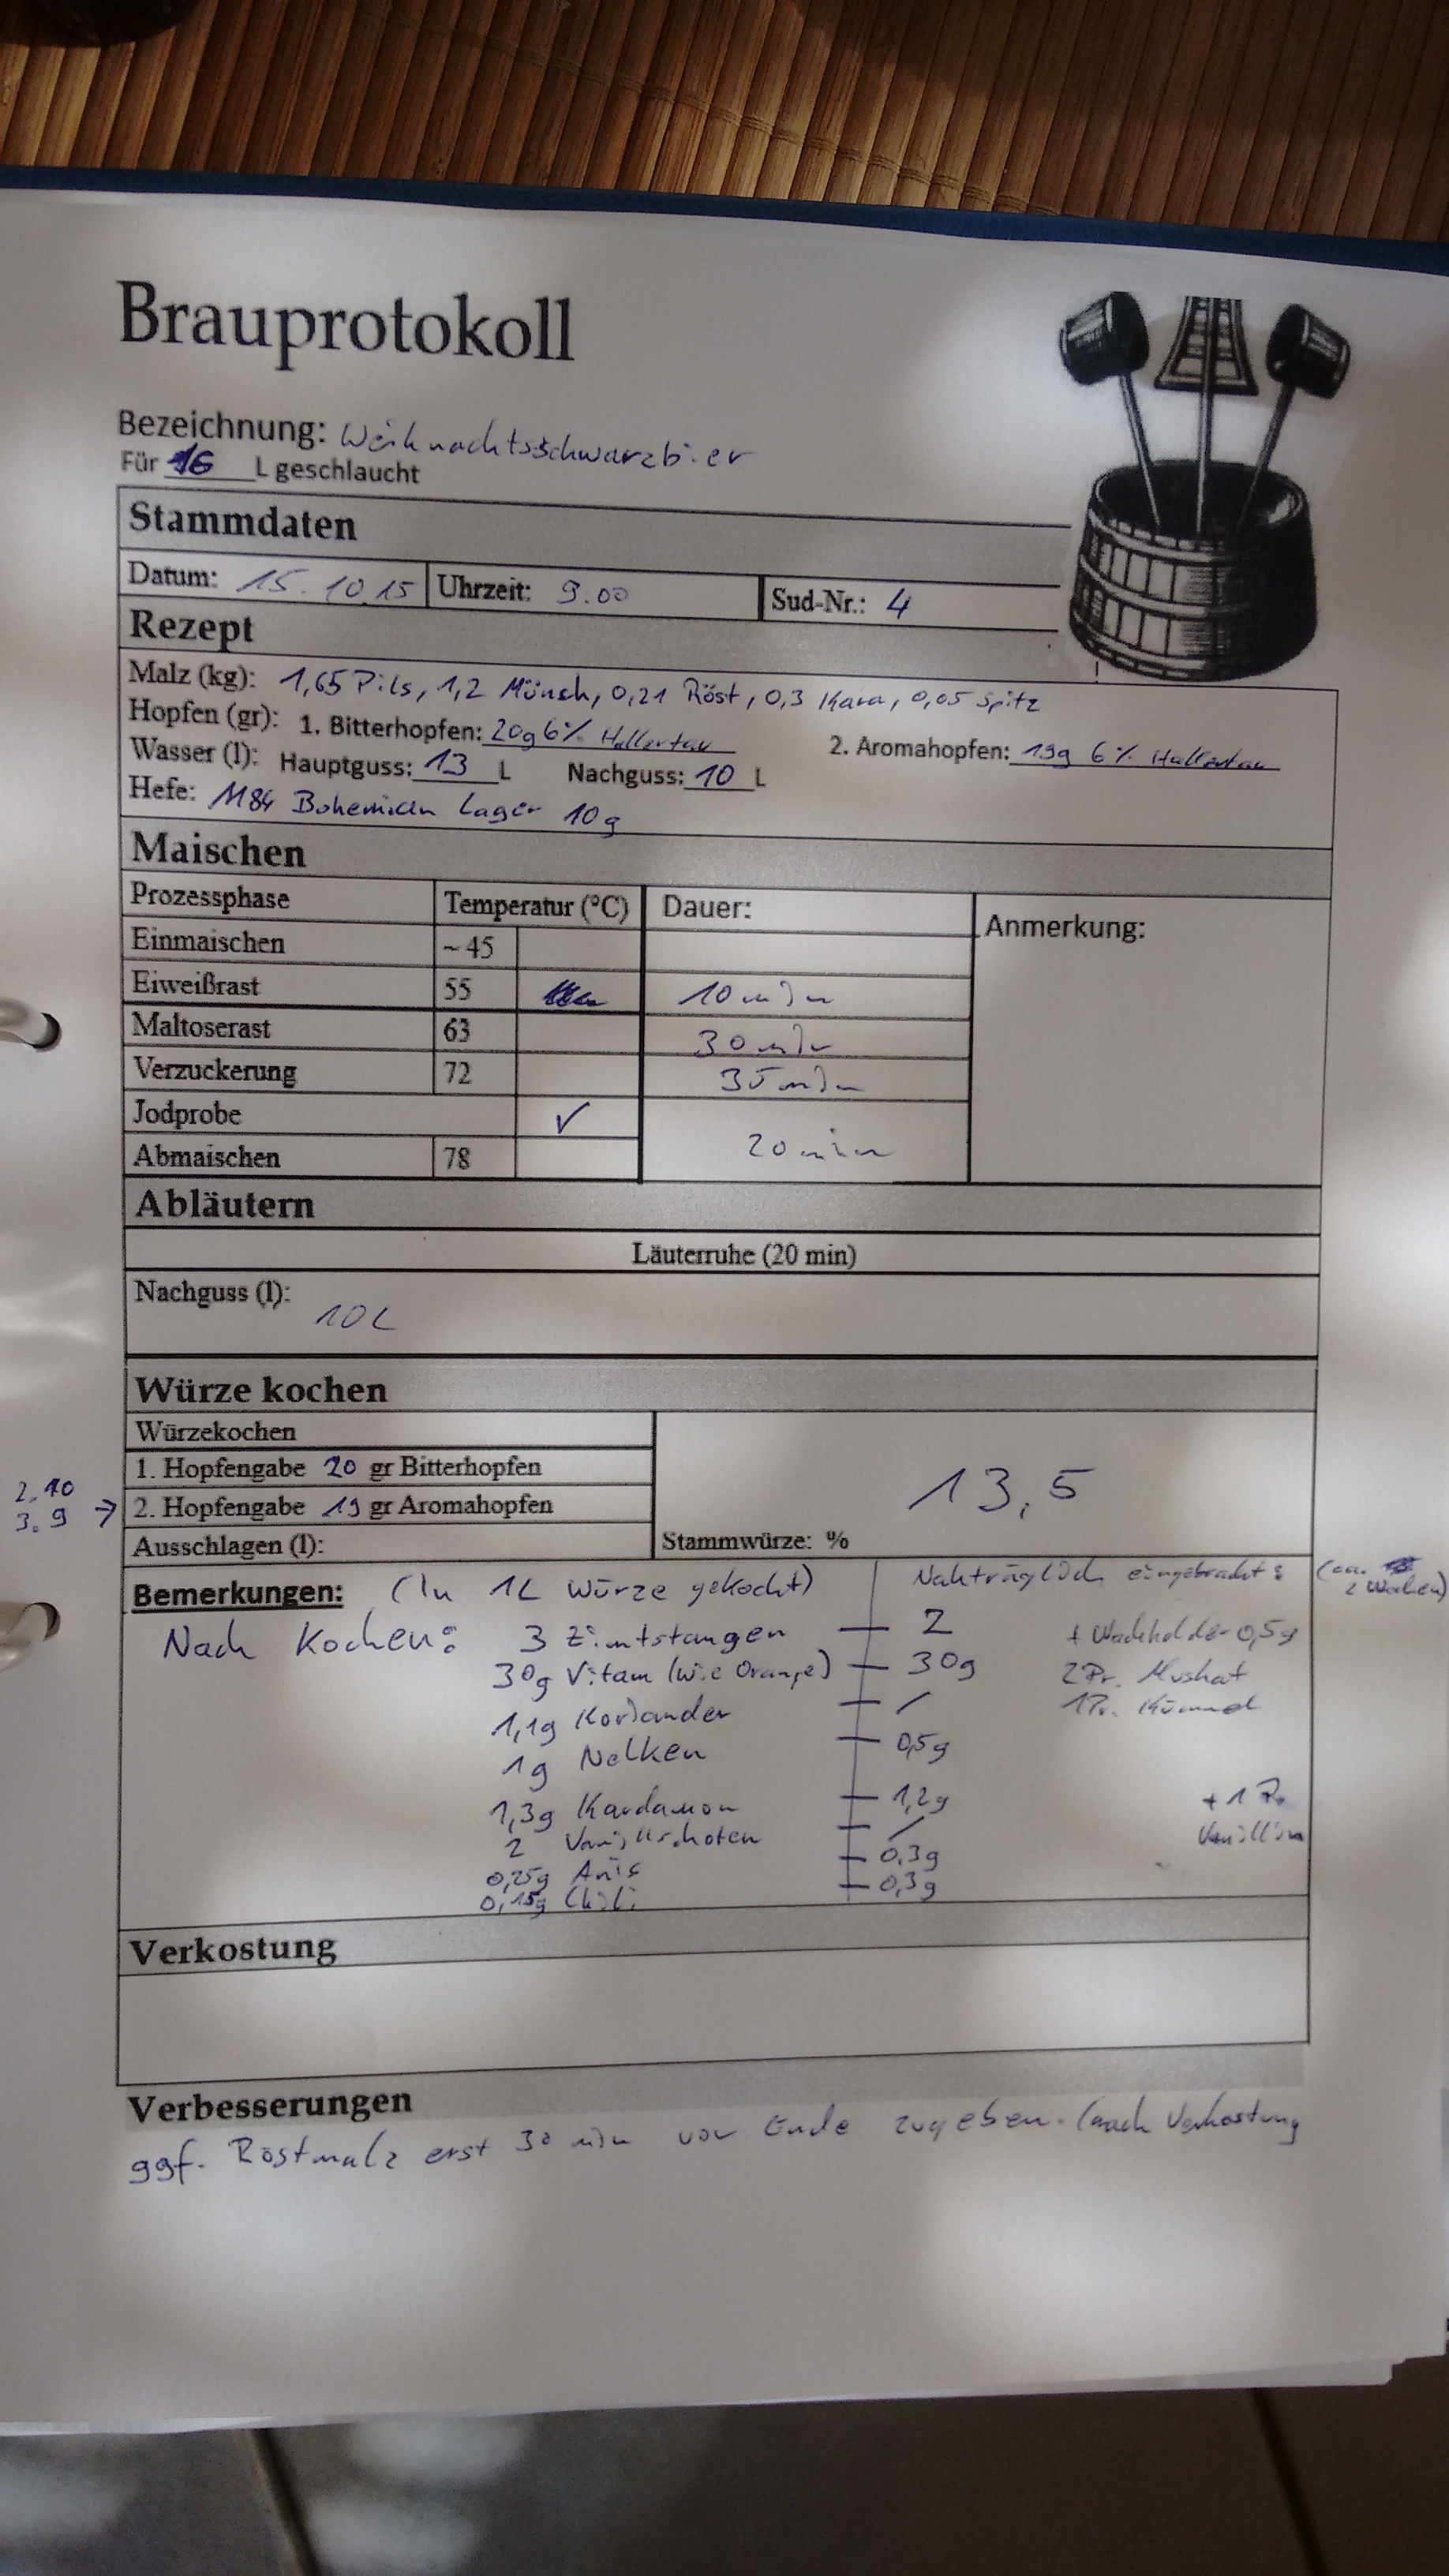 Brauprotokoll
Bezeichnung: Weihnachtsschwarzbier
Für 16 L geschlaucht
Stammdaten
Datum: 15.10.15 Uhrzeit: 9.00 Sud-Nr.: 4
Rezept
Malz (kg): 1,65 Pils, 1,2 Münch, 0,21 Röst, 0,3 Kara, 0,05 Spitz
Hopfen (gr): 1. Bitterhopfen: 20g 6% Hallertau 2. Aromahopfen: 19g 6% Hallertau
Wasser (l): Hauptguss: 13 L Nachguss: 10 L
Hefe: M84 Bohemian Lager 10g
Maischen
Prozessphase Temperatur (°C) Dauer: Anmerkung:
Einmaischen ~45
Eiweißrast 55 10 min
Maltoserast 63 30 min
Verzuckerung 72 35 min
Jodprobe ✓
Abmaischen 78 20 min
Abläutern
Läuterruhe (20 min)
Nachguss (l): 10L
Würze kochen
Würzekochen
1. Hopfengabe 20 gr Bitterhopfen
2. 10
3. 9 → 2. Hopfengabe 19 gr Aromahopfen
13,5
Ausschlagen (l): Stammwürze: %
Bemerkungen: (In 1L Würze gekocht) Nahträglich eingebracht: (ca. 2 Wochen)
Nach Kochen: 3 Zimtstangen — 2 + Wachholder 0,5g
30g Vitam (wie Orange) — 30g 2Pr. Muskat
1,1g Koriander — / 1Pr. Kümmel
1g Nelken — 0,5g
1,3g Kardamon — 1,2g + 1 Pr. Vanillin
2 Vanilleschoten — /
0,25g Anis — 0,3g
0,15g Chili — 0,3g
Verkostung
Verbesserungen
ggf. Röstmalz erst 30 min vor Ende zugeben. (nach Verkostung